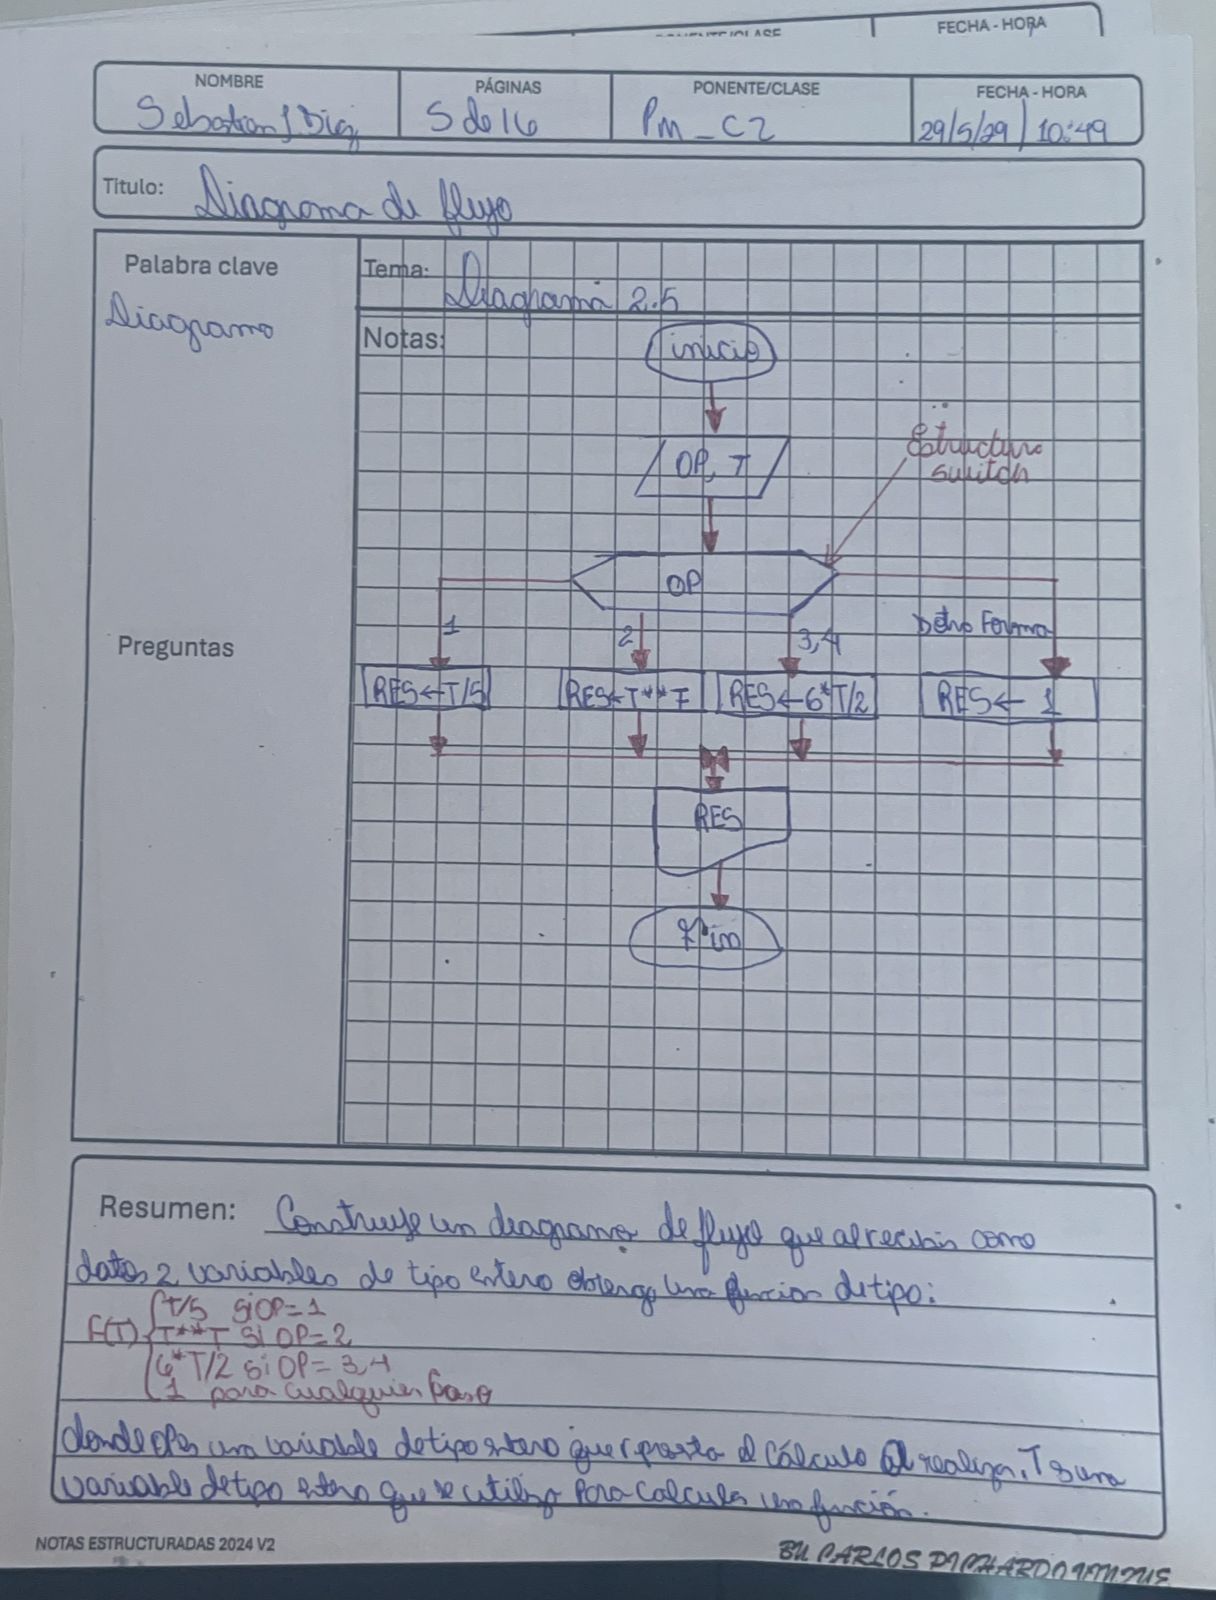 FECHA - HORA
NOMBRE
PÁGINAS
PONENTE/CLASE
FECHA - HORA
5 de 16
Pm_C2
29/5/29 | 10:49
Titulo: Diagrama de flujo
Palabra clave
Diagrama
Tema: Diagrama 2.5
Notas:
inicio
OP, T
Estructura
switch
OP
1
2
3,4
Detro Forma
RES←T/5
RES←T**T
RES←6*T/2
RES← 1
RES
Fin
Preguntas
Resumen: Construye un diagrama de flujo que al recibir como
datos 2 variables de tipo entero obtenga una funcion de tipo:
F(T)
t/5 si OP=1
T**T si OP=2
6*T/2 si OP= 3,4
1 para cualquier
donde un variable de tipo entero que el cálculo realizar. T
variable de tipo entero que se utiliza para calcular una función.
NOTAS ESTRUCTURADAS 2024 V2